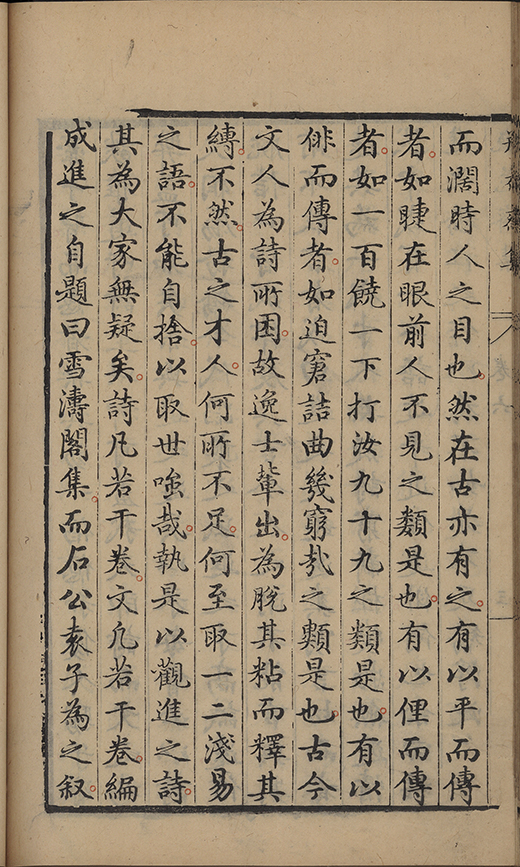 而濶時人之目也然在古亦有之有以平而傳
者如睫在眼前人不見之類是也有以俚而傳
者如一百饒一下打汝九十九之類是也有以
俳而傳者如迫窘詰曲幾窮㢤之類是也古今
文人為詩所困故逸士輩出為脫其粘而釋其
縛不然古之才人何所不足何至取一二淺易
之語不能自捨以取世嗤哉執是以觀進之詩
其為大家無疑矣詩凡若干卷文凡若干卷編
成進之自題曰雪濤閣集而石公袁子為之叙